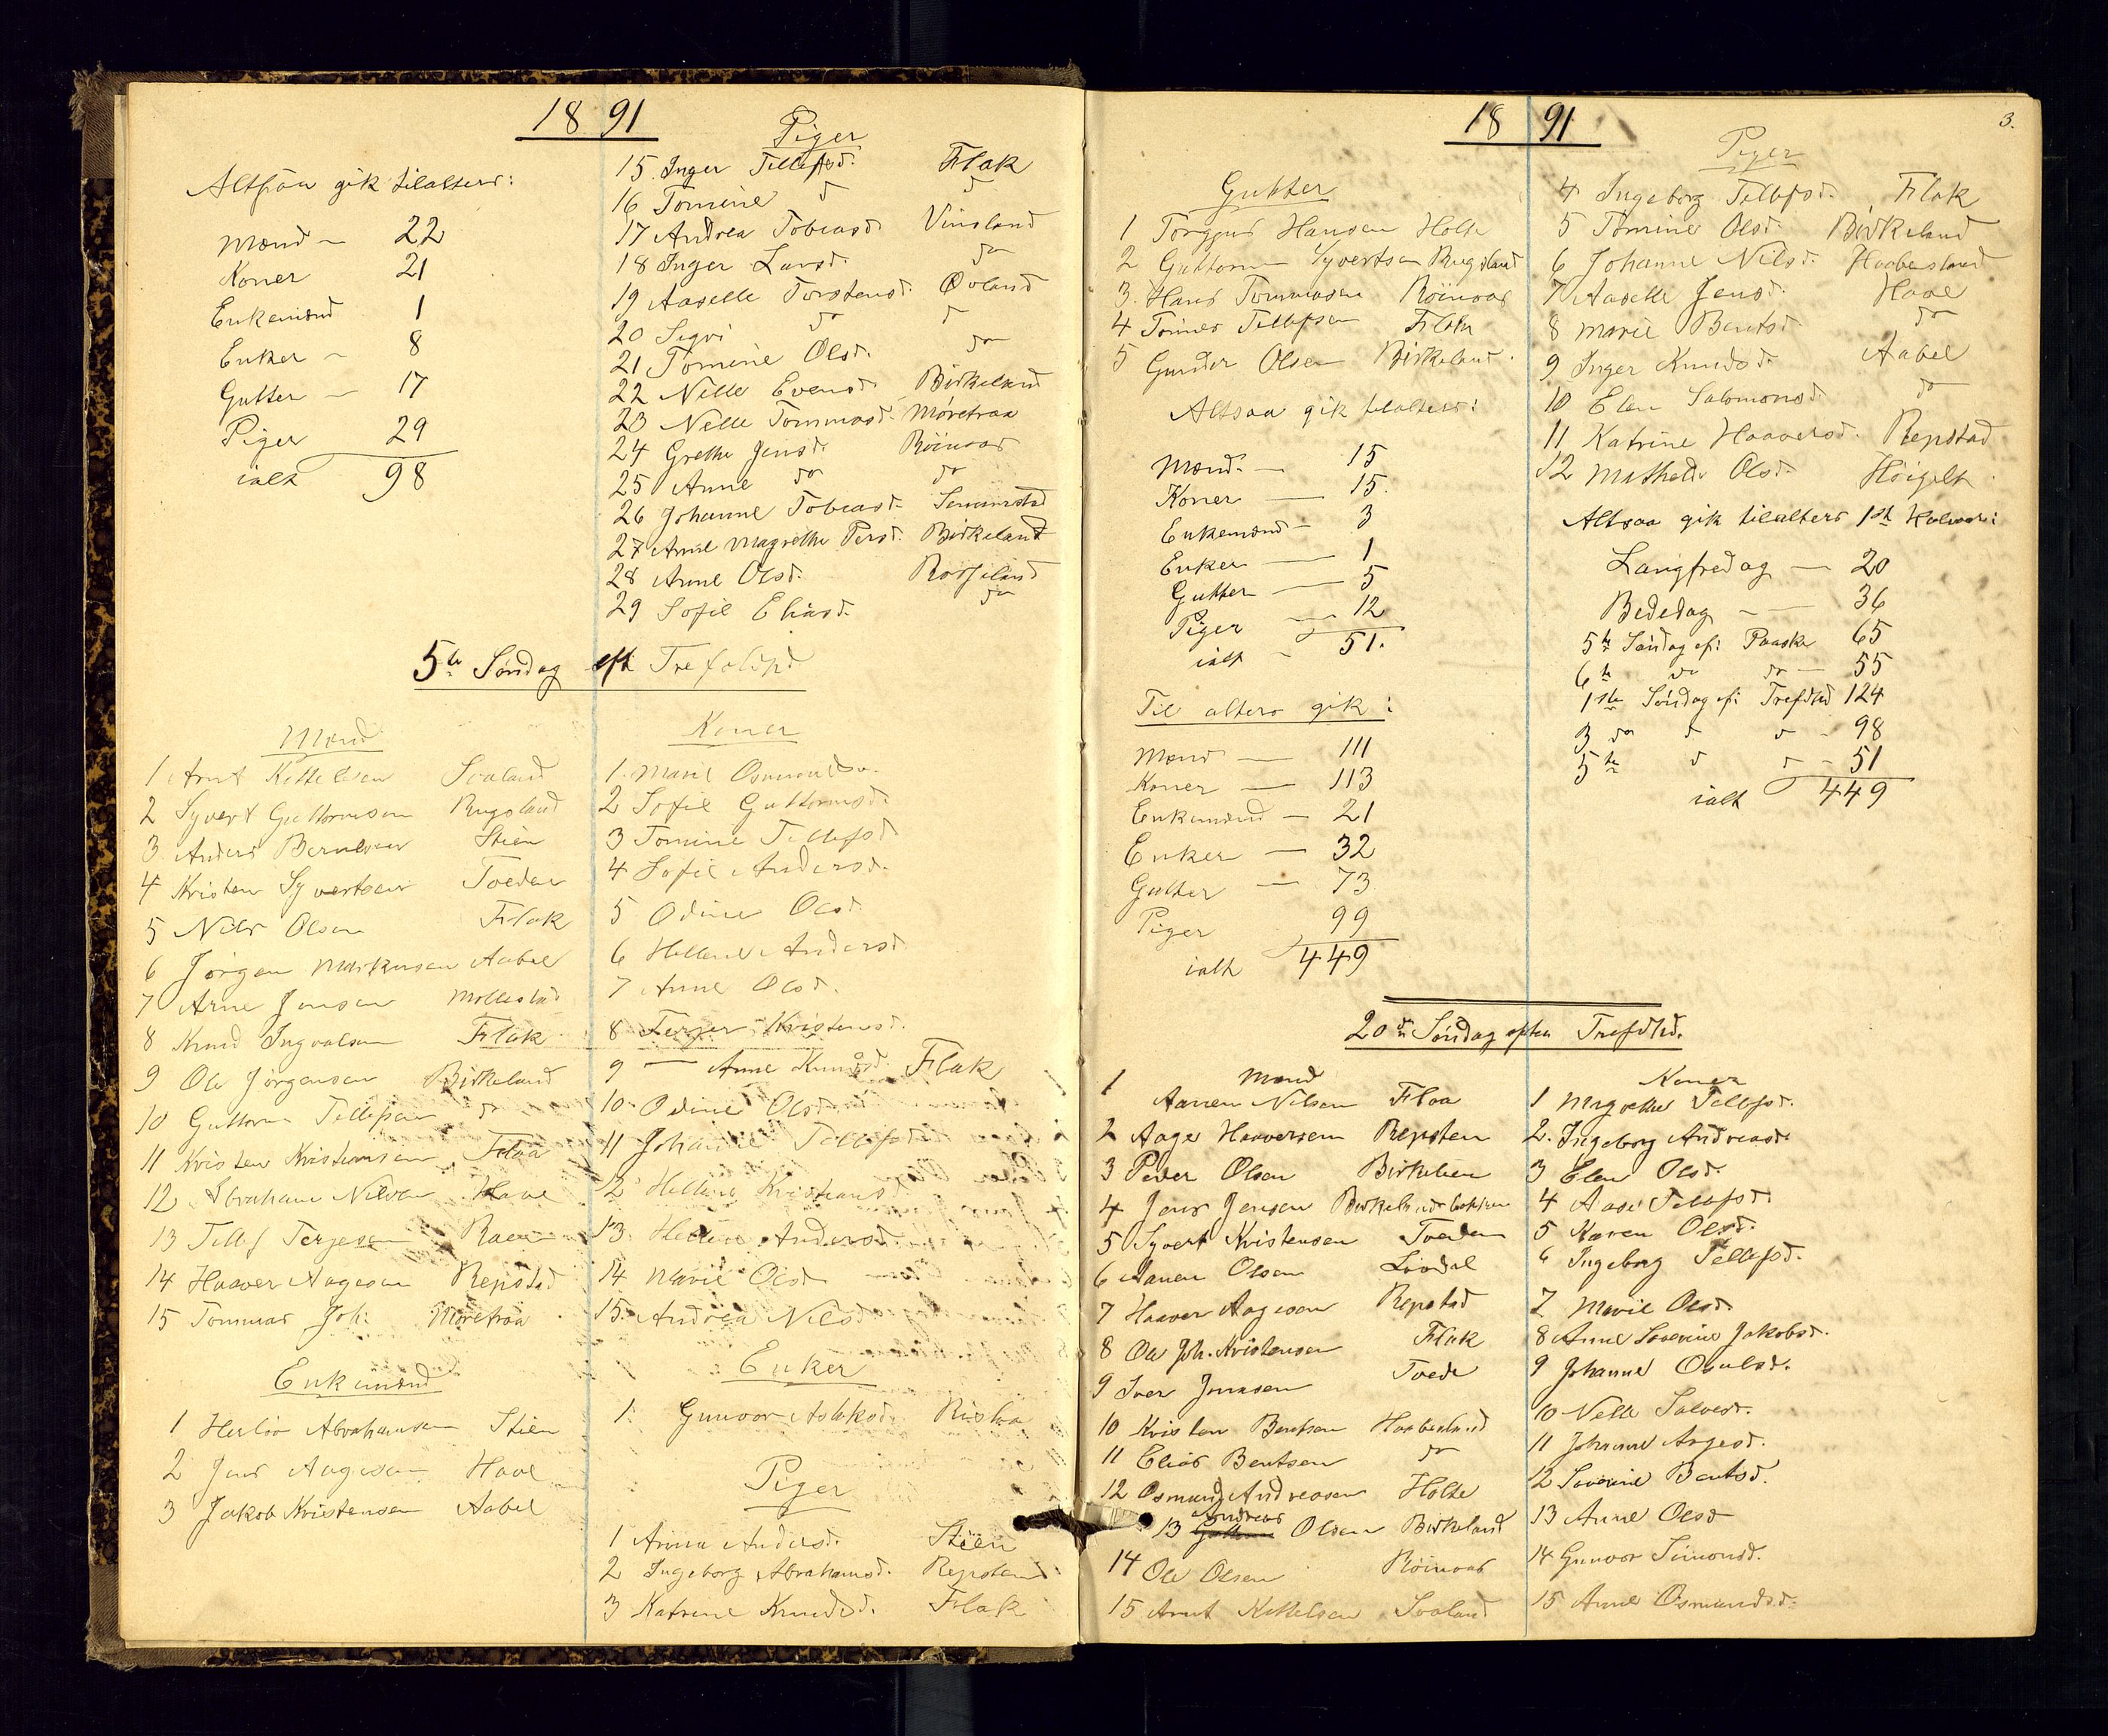 1891
Altsaa gik tilalters:
Mænd - 22
Koner 21
Enkemænd 1
Enker - 8
Gutter - 17
Piger 29
ialt 98
Piger
15. Inger Tellefsd. Flak
16 Tomine do do
17 Andrea Tobiasd. Vinsland
18 Inger Larsd. do
19 Aaselle Torstensd. Øvland
20 Sigri do do
21 Tomine Olsd. do
22 Nelle Evensd. Birkeland
23 Nelle Tommasd. Møretraa
24 Grethe Jensd. Røinaas
25 Anne do do
26 Johanne Tobiasd.
27 Anne Magrethe Persd. Birkeland
28 Anne Olsd.
29 Sofie Eliasd. do
5te Søndag eft Trefoldhd
Mænd
1 Arnt Kittelsen Svaland
2 Syvert Guttormsen Rugsland
3 Anders Berntsen Stien
4 Kristen Syvertsen Tveden
5 Nils Olsen Flak
6 Jörgen Markusen Aabel
7 Arne Jensen Mollestad
8 Knud Ingvalsen Flak
9 Ole Jörgensen Birkeland
10 Guttorm Tellefsen do
11 Kristen Kristensen Flaa
12 Abraham Nilsen Haae
13 Tellef Terjesen
14 Haaver Aagesen Repstad
15 Tommas Joh. Møretraa
Enkemænd
1 Herlov Abrahamsen Stien
2 Jens Aagesen Haae
3 Jakob Kristensen Aabel
Koner
1. Marie Osmundsd.
2 Sofie Guttormsd.
3 Tomine Tellefsd
4 Sofie Andersd.
5 Odine Olsd.
6 Helene Andersd
7 Anne Olsd.
8 Terjer Kristensd.
9 — Anne Knudsd. Flak
10. Odine Olsd
11 Johanne Tellefsd
12 Helene Kristiansd
13. Helene Andersd
14 Marie Olsd
15. Andrea Nilsd
Enker
1. Gunvor Aslaksd. Risla
Piger
1 Anna Andersd. Stien
2 Ingeborg Abrahamsd. Repsten
3 Katrine Knudsd. Flak
1891
3.
Gutter
1 Torgjus Hansen Holte
2 Guttorm Syvertsen Rugsland
3. Hans Tommasen Røinaas
4 Tønnes Tellefsen Flak
5 Gunder Olsen Birkeland.
Altsaa gik tilalters:
Mænd. — 15
Koner — 15.
Enkemænd - 3
Enker — 1
Gutter — 5
Piger — 12
ialt - 51.
Til alters gik:
Mænd — 111
Koner — 113
Enkemænd — 21
Enker — 32
Gutter — 73
Piger 99
ialt 449
Piger
4 Ingeborg Tellefsd. Flak
5 Tomine Olsd. Birkeland
6 Johanne Nilsd. Haabesland
7 Aaselle Jensd. Haae
8 Marie Bentsd. do
9 Inger Knudsd. Aabel
10 Elen Salomonsd do
11 Katrine Haaversd. Repstad
12 Mathilde Olsd. Høigilt
Altsaa gik tilalters 1ste Halvaar:
Langfredag — 20
Bededag - — 36
5te Søndag ef: Paaske 65
6te do do — 55
1ste Søndag ef: Trefdhd 124
3 do d d - 98
5te d d - 51
ialt 449
20de Søndag efter Trefdhd.
Mænd
1 Aanen Nilsen Flaa
2 Aage Haaversen Repsten
3 Peder Olsen Birkelien
4 Jens Jensen Birkelandsbakken
5 Syvert Kristensen Tveden
6 Aanen Olsen Lovdal
7 Haaver Aagesen Repstad
8 Ole Joh. Kristensen Flak
9 Iver Jonasen Tvede
10 Kristen Bentsen Haabesland
11 Elias Bentsen do
12 Osmund Andreasen Holte
13 Guttorm Andreas Olsen Birkeland
14 Ole Olsen Røinaas
15 Arnt Kittelsen Svaland
Koner
1 Magrethe Tellefsd.
2. Ingeborg Andreasd.
3 Elen Olsd.
4 Aase Tellefsd.
5 Karen Olsd.
6 Ingeborg Tellefsd.
7 Marie Olsd.
8 Anne Severine Jakobsd.
9 Johanne Osulsd.
10 Nelle Salvesd.
11 Johanne Aagesd.
12 Severine Bentsd.
13 Anne Olsd
14 Gunvor Simonsd.
15 Anne Osmundsd.